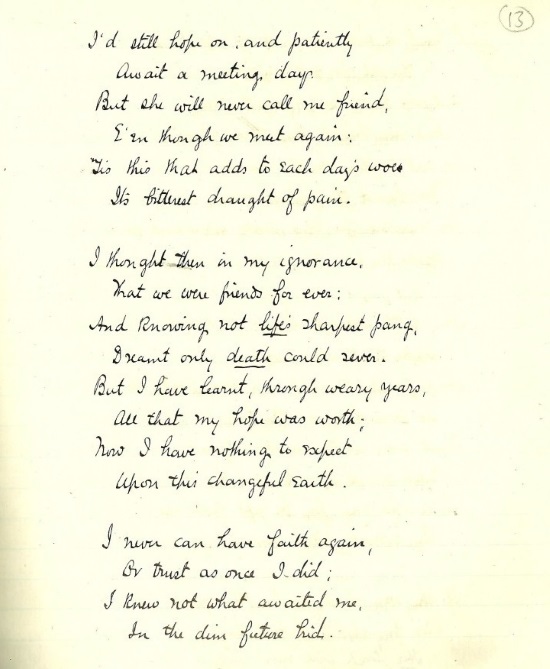 13
I'd still hope on, and patiently
Await a meeting day.
But she will never call me friend,
E'en though we meet again:
'Tis this that adds to each day's woes
Its bitterest draught of pain.
I thought then in my ignorance,
That we were friends for ever;
And knowing not life's sharpest pang,
Dreamt only death could sever.
But I have learnt, through weary years,
All that my hope was worth;
Now I have nothing to expect
Upon this changeful earth.
I never can have faith again,
Or trust as once I did;
I knew not what awaited me,
In the dim future hid.